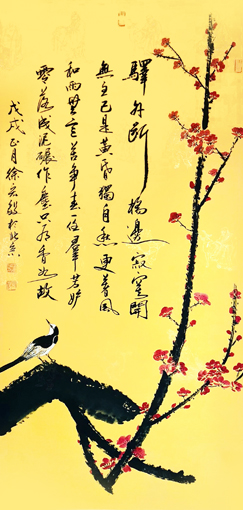 驛外斷橋邊寂寞開
無主已是黄昏獨自愁更著風
和雨無意苦争春一任羣芳妒
零落成泥碾作塵只有香如故
戊戌正月徐於北京